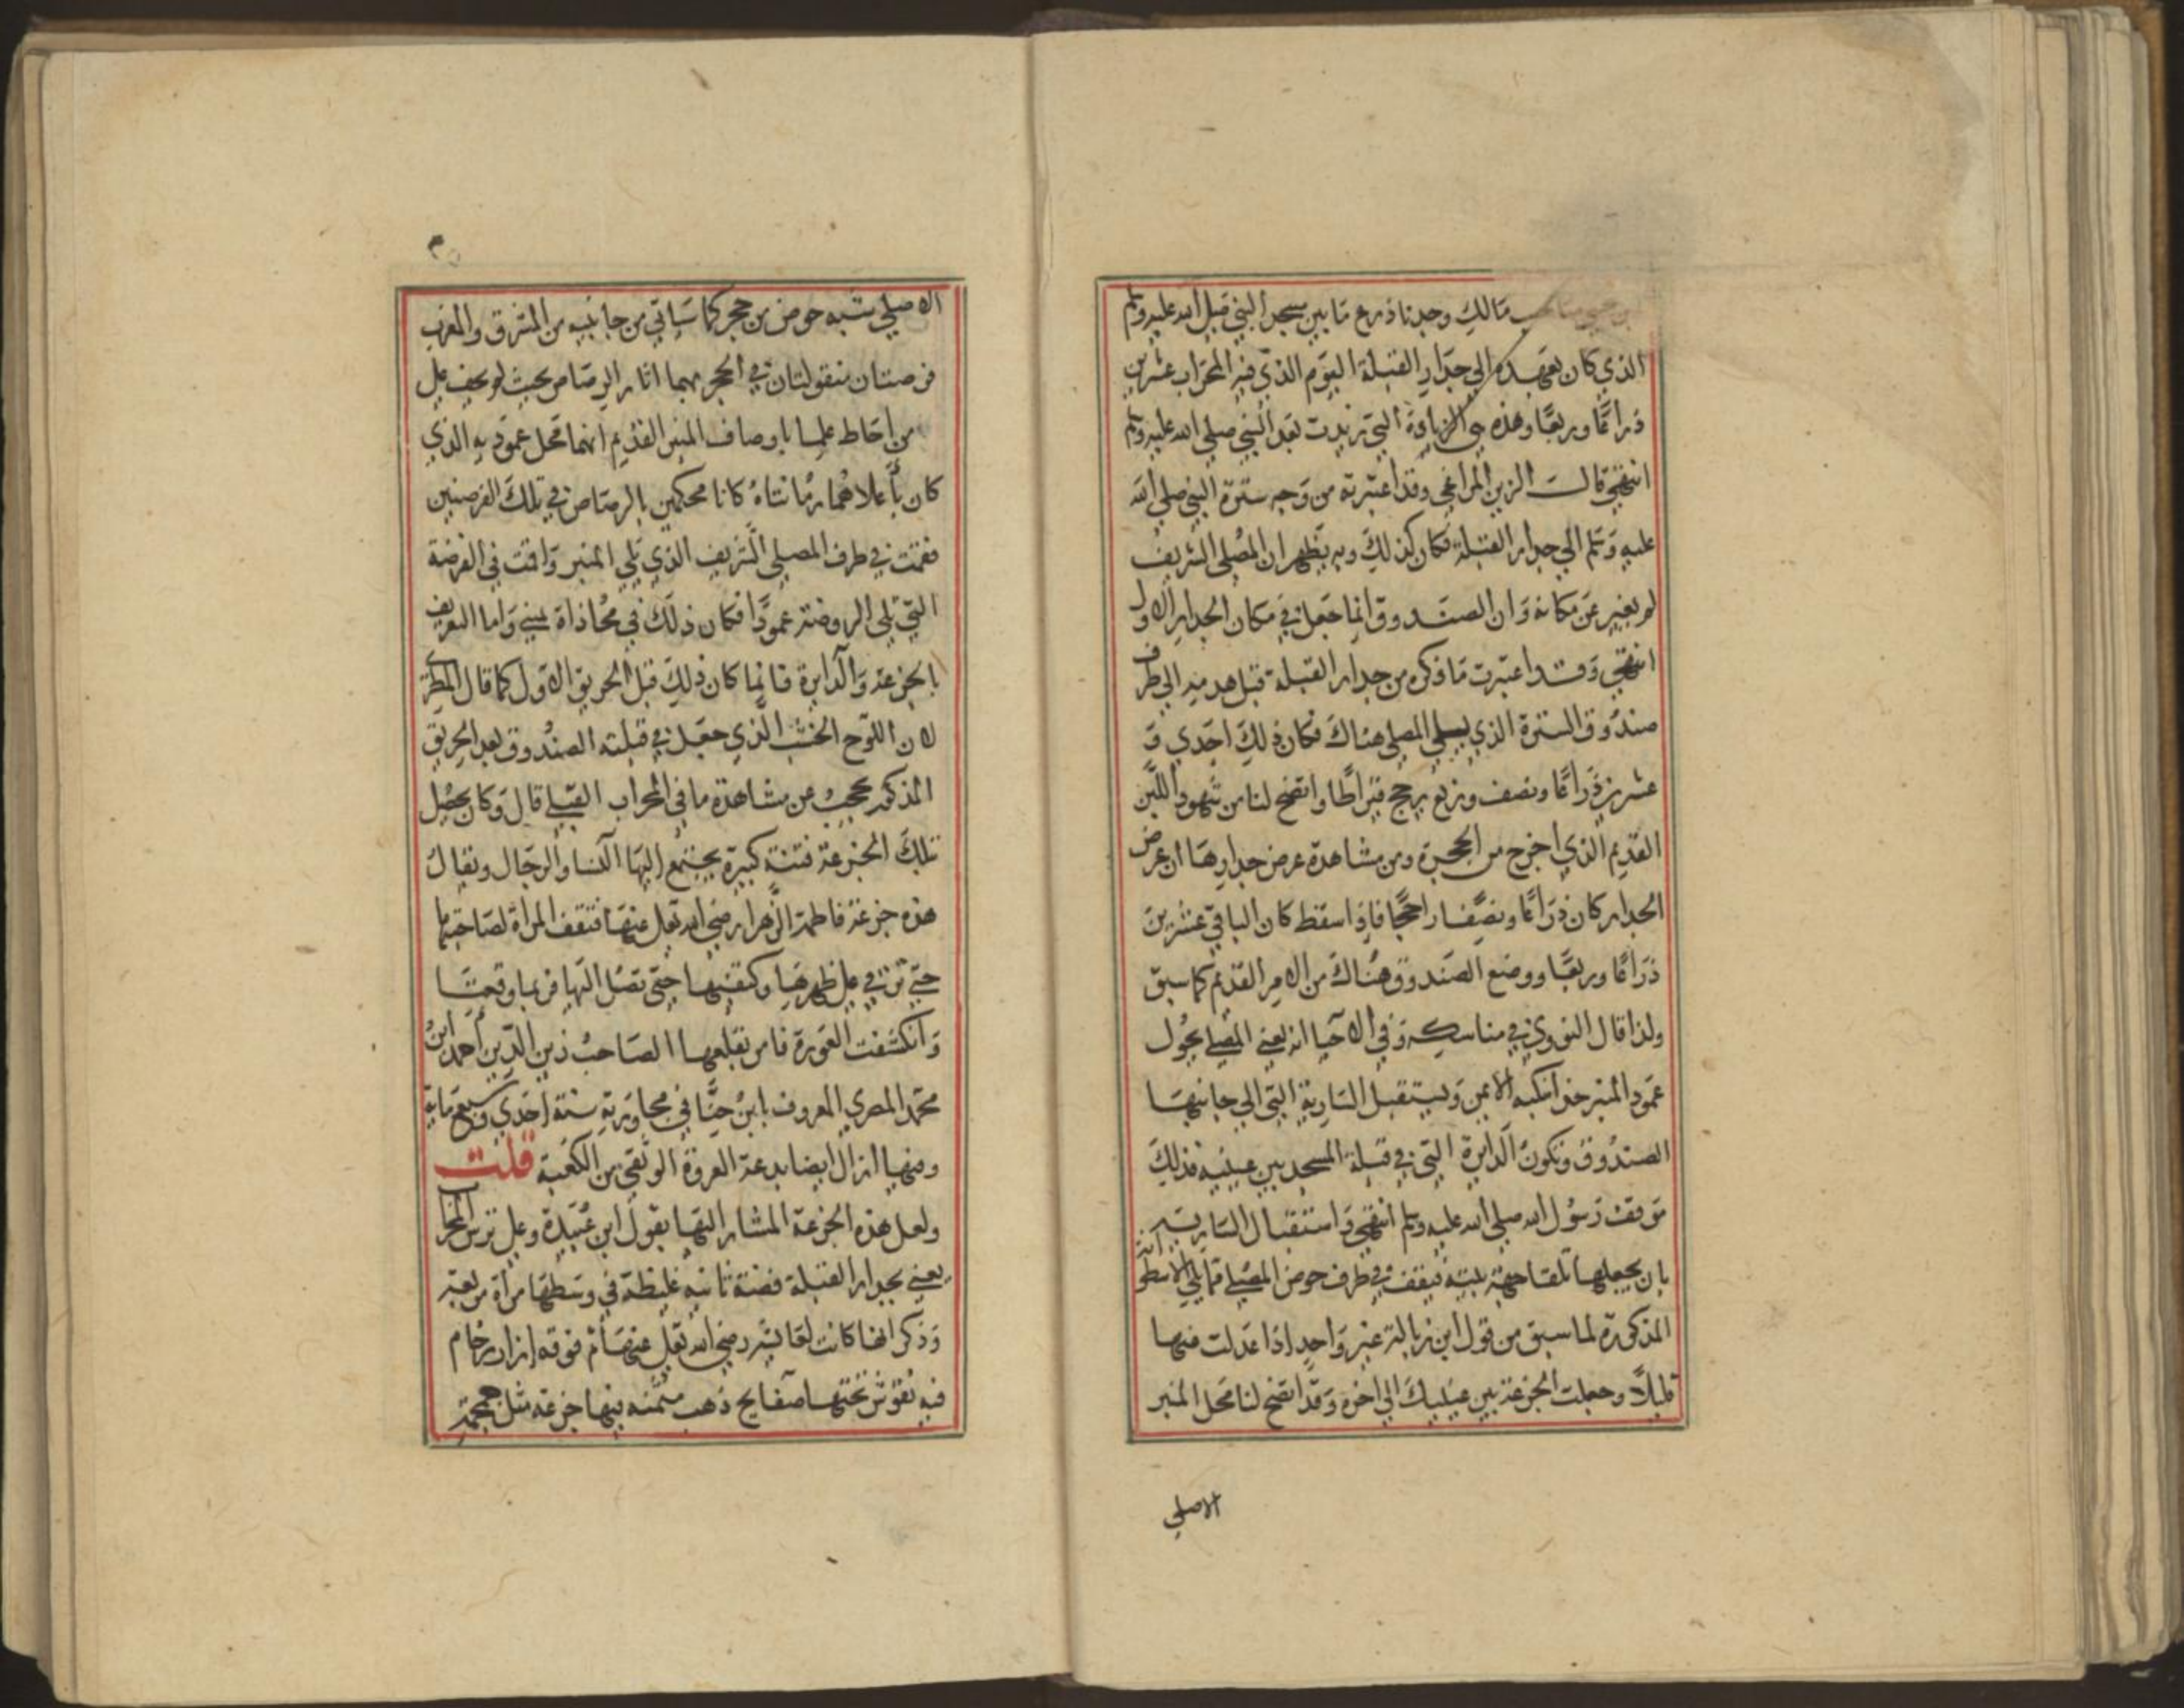 مالك وجدنا ذرع ما بين مسجد النبي قبل الله عليه وسلم
الذي كان بعهده الى جدار القبلة اليوم الذي فيه المحراب عشرين
ذراعًا وربعًا وهذه هي الزيادة التي زيدت بعد النبي صلى الله عليه وسلم
انتهى قالت الزين المراغي وقد اعتبرته من وجه سترة النبي صلى الله
عليه وسلم الى جدار القبلة فكان كذلك وبه يظهر ان المصلى الشريف
لم يغير عن مكانه وان الصندوق انما جعل في مكان الجدار الاول
انتهى وقد اعتبرت ما ذكره من جدار القبلة قبل هدمه الى طرف
صندوق السترة الذي يلي المصلى هناك فكان ذلك احدي و
عشرين ذراعًا ونصف وربع يرجح قيراطا واتضح لنا من شهود اللبن
القديم الذي اخرج من الحجرة ومن مشاهدة عرض جدارها ان عرض
الجدار كان ذراعًا ونصفا راجحًا فاذا سقط كان الباقي عشرين
ذراعًا وربعًا ووضع الصندوق هناك من الامر القديم كما سبق
ولذا قال النووي في مناسكه وفي الاحيا انه يعني المصلي يجول
عمود المنبر حذا منكبه الايمن ويستقبل السارية التي الي جانبها
الصندوق وتكون الدايرة التي في قبلة المسجد بين عينيه فذلك
موقف رسول الله صلى الله عليه وسلم انتهى واستقبال السارية
بان يجعلها تلقا جهة يمينه فيقف في طرف حوض المصلي مما يلي الاسطوانة
المذكورة لما سبق من قول ابن زبالة عن غير واحد اذا عدلت منها
قليلاً وجعلت الجزعة بين عينيك الي اخره وقد اتضح لنا محل المنبر
الاصلي
الاصلي شبه حوض من حجر كما سياتي من جانبيه من المشرق والمغرب
فرصتان منقولتان في الحجر بهما اثار الرصاص بحيث لم يخف علي
من احاط علما باوصاف المنبر القديم انهما محل عموديه الذي
كان بأعلاهما رمانتاه كانا محكمين بالرصاص في تلك الفرصتين
فقمت في طرف المصلى الشريف الذي يلي المنبر واقمت في الفرضة
التي تلي الروضة عمودًا فكان ذلك في محاذاة يميني واما التعريف
بالجزعة والدايرة فانما كان ذلك قبل الحريق الاول كما قال المطري
لان اللوح الخشب الذي جعل في قبلته الصندوق بعد الحريق
المذكور محجب عن مشاهدة ما في المحراب القبلي قال وكان يحصل
بتلك الجزعة فتنة كبيرة يجتمع اليها النسا والرجال ويقال
هذه جزعة فاطمة الزهرا رضي الله تعالى عنها فتقف المراة لصاحبتها
حتى ترتقي على ظهرها وكتفيها حتى تصل اليها فربما وقعتا
وانكشفت العورة فامر بقلعها الصاحب زين الدين احمد ابن
محمد المصري المعروف بابن حنا في مجاورته سنة احدي وسبعماية
وفيها ازال ايضا بدعة العروة الوثقى من الكعبة قلت
ولعل هذه الجزعة المشار اليها بقول ابن عبيدة وعلى ترس المحراب
يعني بجدار القبلة فضة ثانيه غليظة في وسطها مراة مربعة
وذكر انها كانت لعايشه رضي الله تعالى عنها ثم فوقه ازار رخام
فيه نقوش تحتها صفايح ذهب مثمنه فيها جزعة مثل جمجمة